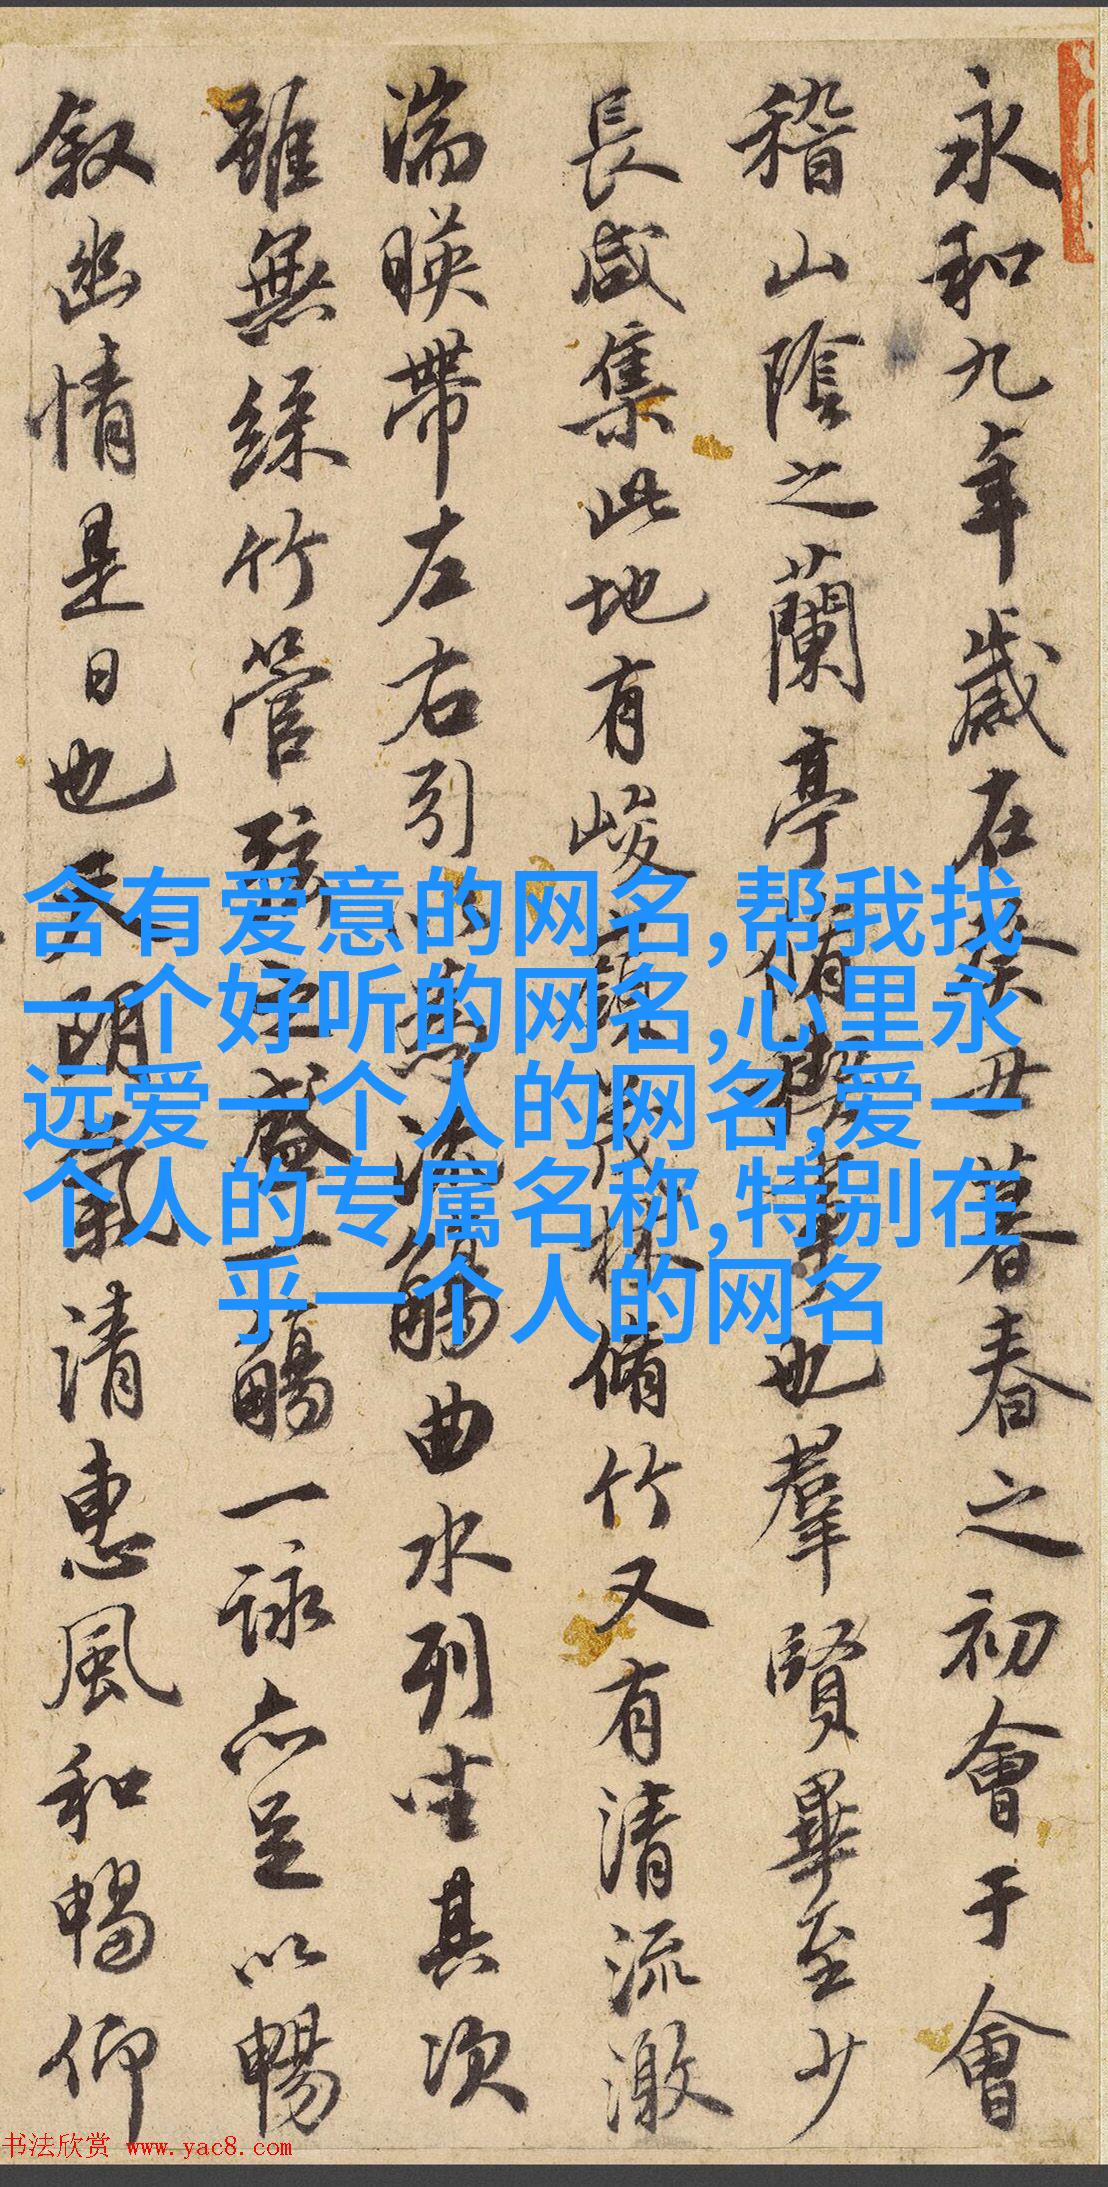 永和九年歲在癸丑暮春之初會于會
稽山陰之蘭亭脩禊事也羣賢畢至少
長咸集此地有峻領茂林脩竹又有清流激
湍暎帶左右引以為流觴曲水列坐其次
雖無絲竹管弦之盛一觴一詠亦足以暢
叙幽情是日也天朗氣清惠風和暢仰
含有爱意的网名,帮我找
一个好听的网名,心里永
远爱一个人的网名,爱一
个人的专属名称,特别在
乎一个人的网名
书法欣赏 www.yac8.com